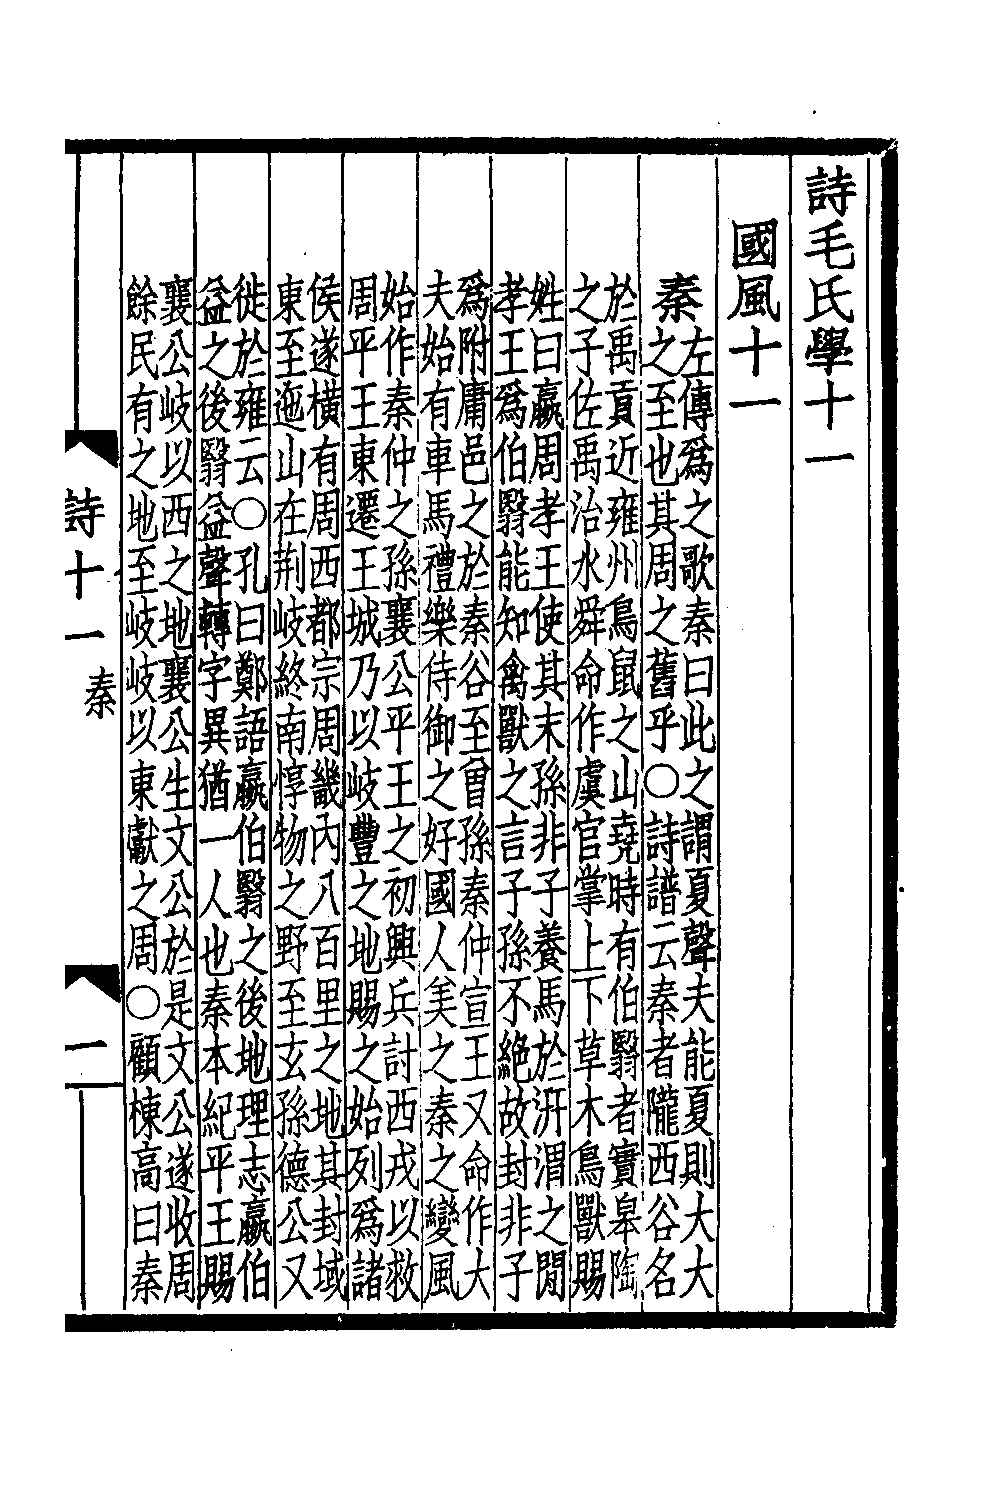 詩毛氏學十一
國風十一
秦
左傳爲之歌秦曰此之謂夏聲夫能夏則大大
之至也其周之舊乎〇詩譜云秦者隴西谷名
於禹貢近雍州鳥鼠之山堯時有伯翳者實皋陶
之子佐禹治水舜命作虞官掌上下草木鳥獸賜
姓曰嬴周孝王使其末孫非子養馬於汧渭之閒
孝王爲伯翳能知禽獸之言子孫不絶故封非子
爲附庸邑之於秦谷至曾孫秦仲宣王又命作大
夫始有車馬禮樂侍御之好國人美之秦之變風
始作秦仲之孫襄公平王之初興兵討西戎以救
周平王東遷王城乃以岐豐之地賜之始列爲諸
侯遂橫有周西都宗周畿內八百里之地其封域
東至迤山在荆岐終南惇物之野至玄孫德公又
徙於雍云〇孔曰鄭語嬴伯翳之後地理志嬴伯
益之後翳益聲轉字異猶一人也秦本紀平王賜
襄公岐以西之地襄公生文公於是文公遂收周
餘民有之地至岐岐以東獻之周〇顧棟高曰秦
詩十一
秦
一